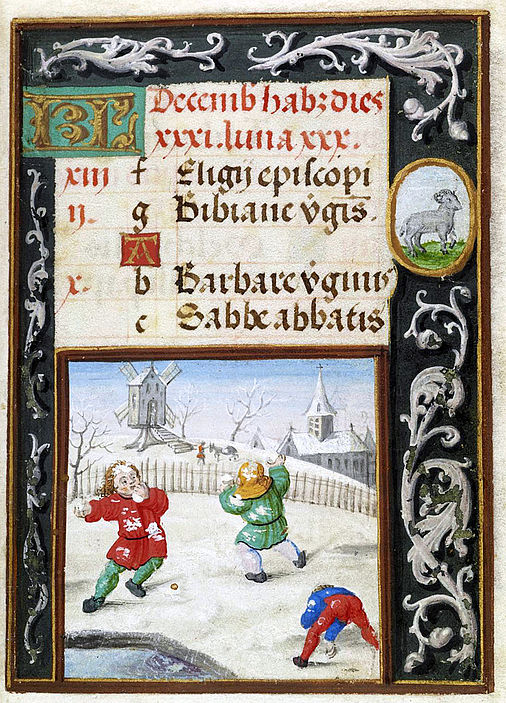 KL Decemb habz dies
xxxi. luna xxx.
xiii f Eligij episcopi
ij. g Bibiane v̄gis.
A
x. b Barbare v̄ginis
c Sabbe abbatis